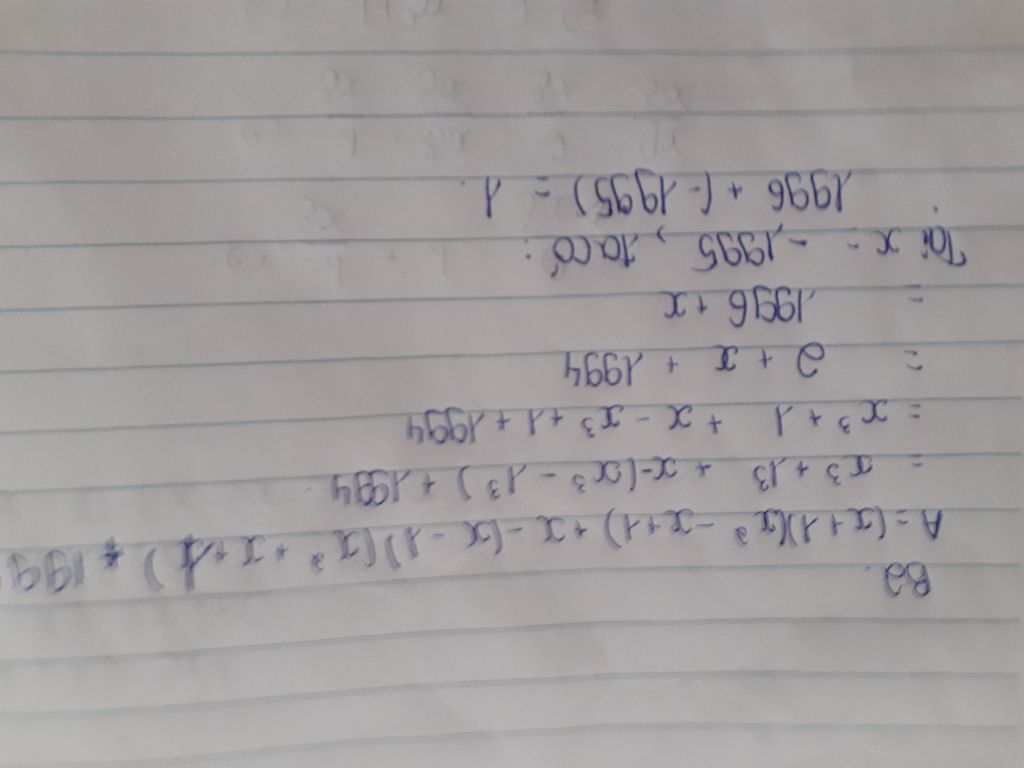 B2.
A = (x + 1)(x² - x + 1) + x - (x - 1)(x² + x + 1) + 199
= x³ + 1³ + x - (x³ - 1³) + 1994
= x³ + 1 + x - x³ + 1 + 1994
= 2 + x + 1994
= 1996 + x
Tại x = -1995, ta có:
1996 + (-1995) = 1.